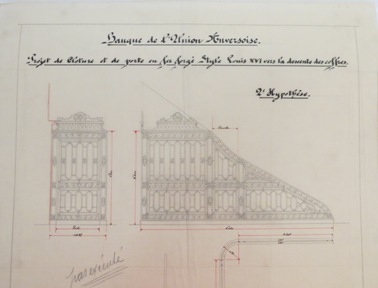 Banque de l'Union Anversoise.
Projet de Clôture et de porte en fer forgé Style Louis XVI vers la descente des coffres.
2e Hypothèse.
pas exécuté